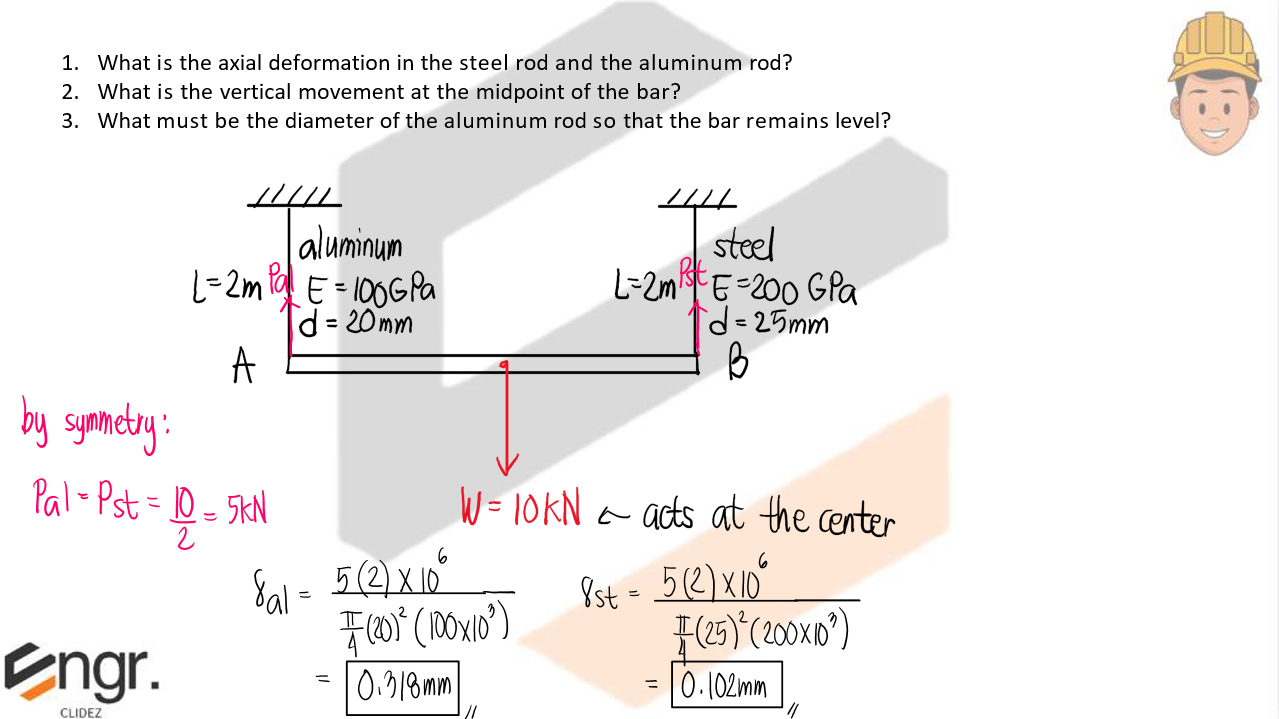 1. What is the axial deformation in the steel rod and the aluminum rod?
2. What is the vertical movement at the midpoint of the bar?
3. What must be the diameter of the aluminum rod so that the bar remains level?
aluminum
L=2m Pal E=100GPa
d=20mm
A
steel
L=2m Pst E=200 GPa
d=25mm
B
by symmetry:
Pal = Pst = 10/2 = 5kN
W=10kN ← acts at the center
δal = 5(2)×10⁶ / π/4 (20)² (100×10³)
= 0.318mm
δst = 5(2)×10⁶ / π/4 (25)² (200×10³)
= 0.102mm
Engr.
CLIDEZ